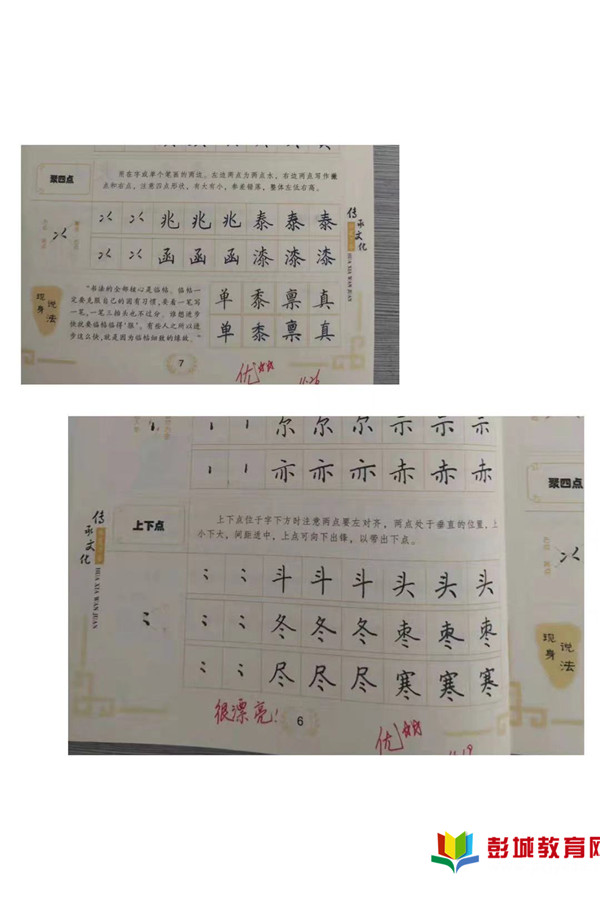 聚四点
用在字或单个笔画的两边。左边两点为两点水，右边两点写作撇
点和右点。注意四点形状，有大有小，参差错落，整体左低右高。
兆 兆 兆 泰 泰 泰
函 函 函 漆 漆 漆
传承文化
HUA XIA WAN JUAN
现身说法
“书法的全部核心是临帖。临帖一
定要克服自己的固有习惯，要看一笔写
一笔，一笔三抬头也不过分。谁想进步
快就要临帖临得“狠”。有些人之所以进
步这么快，就是因为临帖细致的缘故。”
单 黍 禀 真
单 黍 禀 真
7
优
11.26
尔 尔 尔 示 示 示
亦 亦 亦 赤 赤 赤
传承文化
HUA XIA WAN JUAN
上下点
上下点位于字下方时注意两点要左对齐，两点处于垂直的位置，上
小下大，间距适中，上点可向下出锋，以带出下点。
斗 斗 斗 头 头 头
冬 冬 冬 枣 枣 枣
尽 尽 尽 寒 寒 寒
很漂亮！
6
优
11.19
聚四点
现身说法
彭城教育网